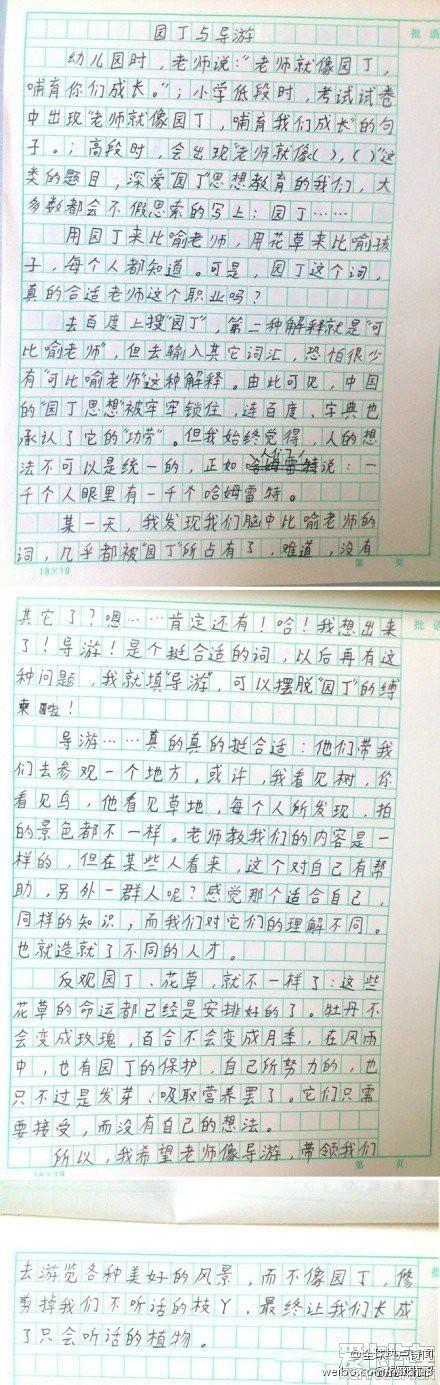 批语
园丁与导游
幼儿园时，老师说：“老师就像园丁，
哺育你们成长。”；小学低段时，考试试卷
中出现“老师就像园丁，哺育我们成长”的句
子。；高段时，会出现“老师就像( )，( )”这
类的题目，深爱“园丁”思想教育的我们，大
多数都会不假思索的写上：园丁……
用园丁来比喻老师，用花草来比喻孩
子，每个人都知道。可是，园丁这个词，
真的合适老师这个职业吗？
去百度上搜“园丁”，第二种解释就是“可
比喻老师”，但去输入其它词汇，恐怕很少
有“可比喻老师”这种解释。由此可见，中国
的“园丁思想”被牢牢锁住，连百度、字典也
承认了它的“功劳”。但我始终觉得，人的想
法不可以是统一的，正如人们说：一
千个人眼里有一千个哈姆雷特。
某一天，我发现我们脑中比喻老师的
词，几乎都被“园丁”所占有了，难道，没有
18×19
第 页
批语
其它了？嗯……肯定还有！哈！我想出来
了！导游！是个挺合适的词，以后再有这
种问题，我就填“导游”，可以摆脱“园丁”的缚
束啦！
导游……真的真的挺合适：他们带我
们去参观一个地方，或许，我看见树，你
看见鸟，他看见草地，每个人所发现，拍
的景色都不一样。老师教我们的内容是一
样的，但在某些人看来，这个对自己有帮
助，另外一群人呢？感觉那个适合自己，
同样的知识，而我们对它们的理解不同。
也就造就了不同的人才。
反观园丁、花草，就不一样了：这些
花草的命运都已经是安排好的了。牡丹不
会变成玫瑰，百合不会变成月季，在风雨
中，也有园丁的保护，自己所努力的，也
只不过是发芽、吸取营养罢了。它们只需
要接受，而没有自己的想法。
所以，我希望老师像导游，带领我们
18×19
第 页
批
去游览各种美好的风景，而不像园丁，修
剪掉我们不听话的枝丫，最终让我们长成
了只会听话的植物。